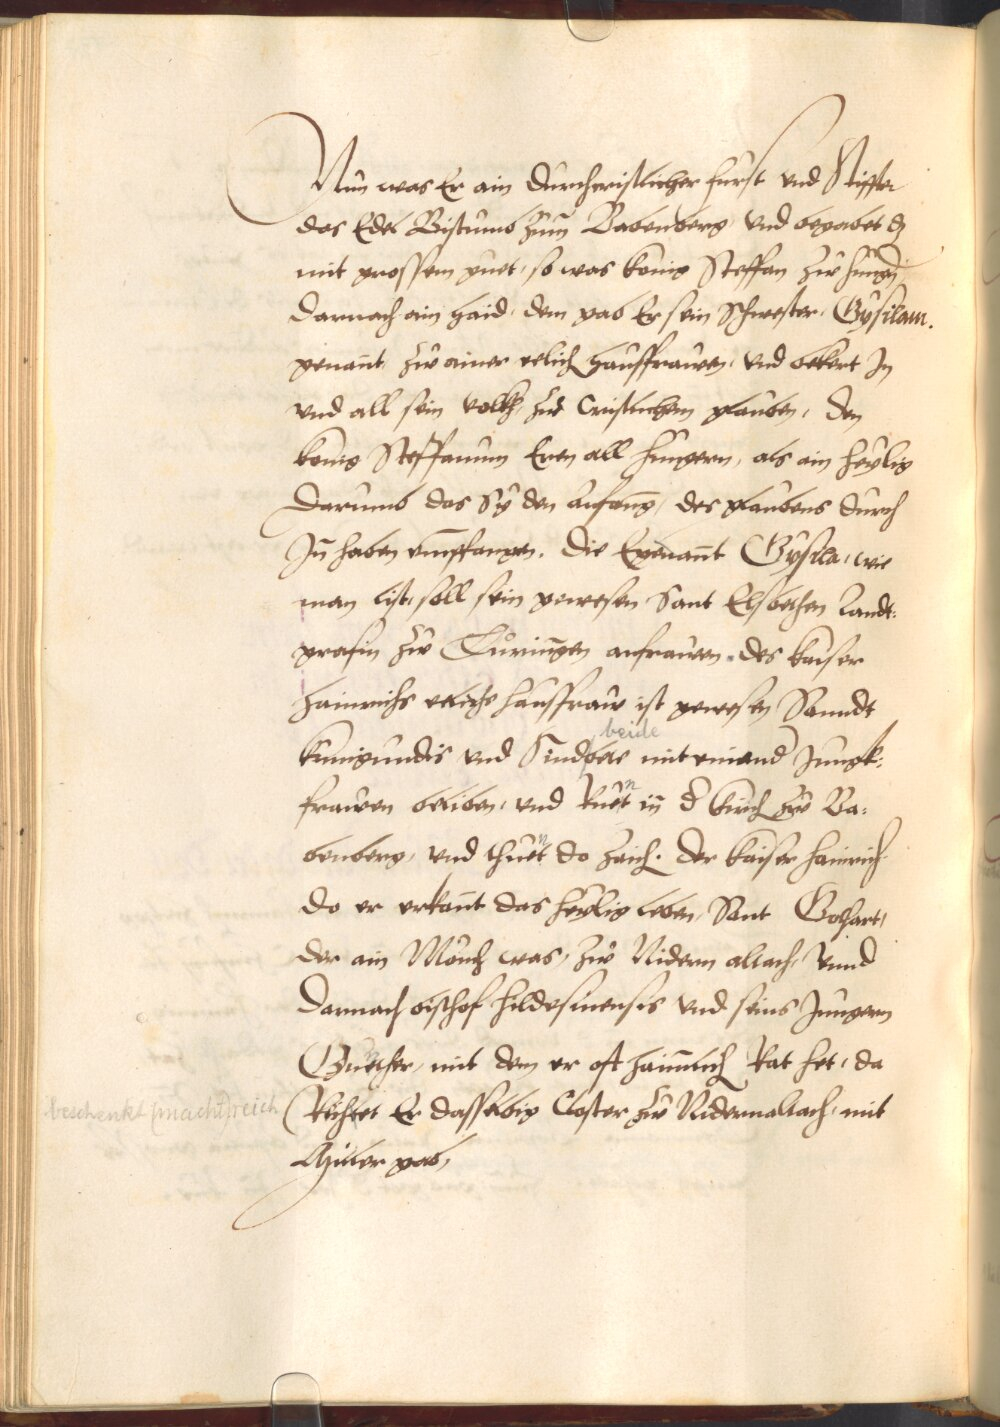 Nun was Er ain durchcristlicher fürst vnd Stiffter
des Edel Bistumb zum Babenberg, vnd begabet dz
mit grossem guet, so was konig Steffan zw hungern
darnach ain haid, dem gab Er sein Schwester, Gÿsilam.
genannt zw ainer eelich hausfrawen, vnd bekert In
vnd all sein volkh, zw Cristlichem glauben, den
konig Steffanum Eren all hungern, als ain heylig
darumb das Sÿ den anfang, des glaubens durch
In haben emffangen. Die Egenannt Gÿsila, wie
man list, soll sein gewesen Sant Elsbethen Landt:
grafin zw Düringen anfrawen. des kaiser
Hainrichs eeliche hausfraw ist gewesen Sanndt
beide
Kunigundis vnd Sind peee mit einand Jungk:
frawen beliben, vnd Ruet n in d kirch zw Ba:
benberg, vnd thuet n do zaich. der kaiser hainrich
do er erkannt das heylig leben, Sant Gothart,
der ain Mönch was, zw Nidern altach, vnnd
darnach bischof hildesinensis vnd seins Jungern
Guncher, mit dem er oft haimlich Rat het, da
beschenkt (macht) reich Richtet Er dasselbig Closter zw Nidernaltach, mit
Chiller gab,